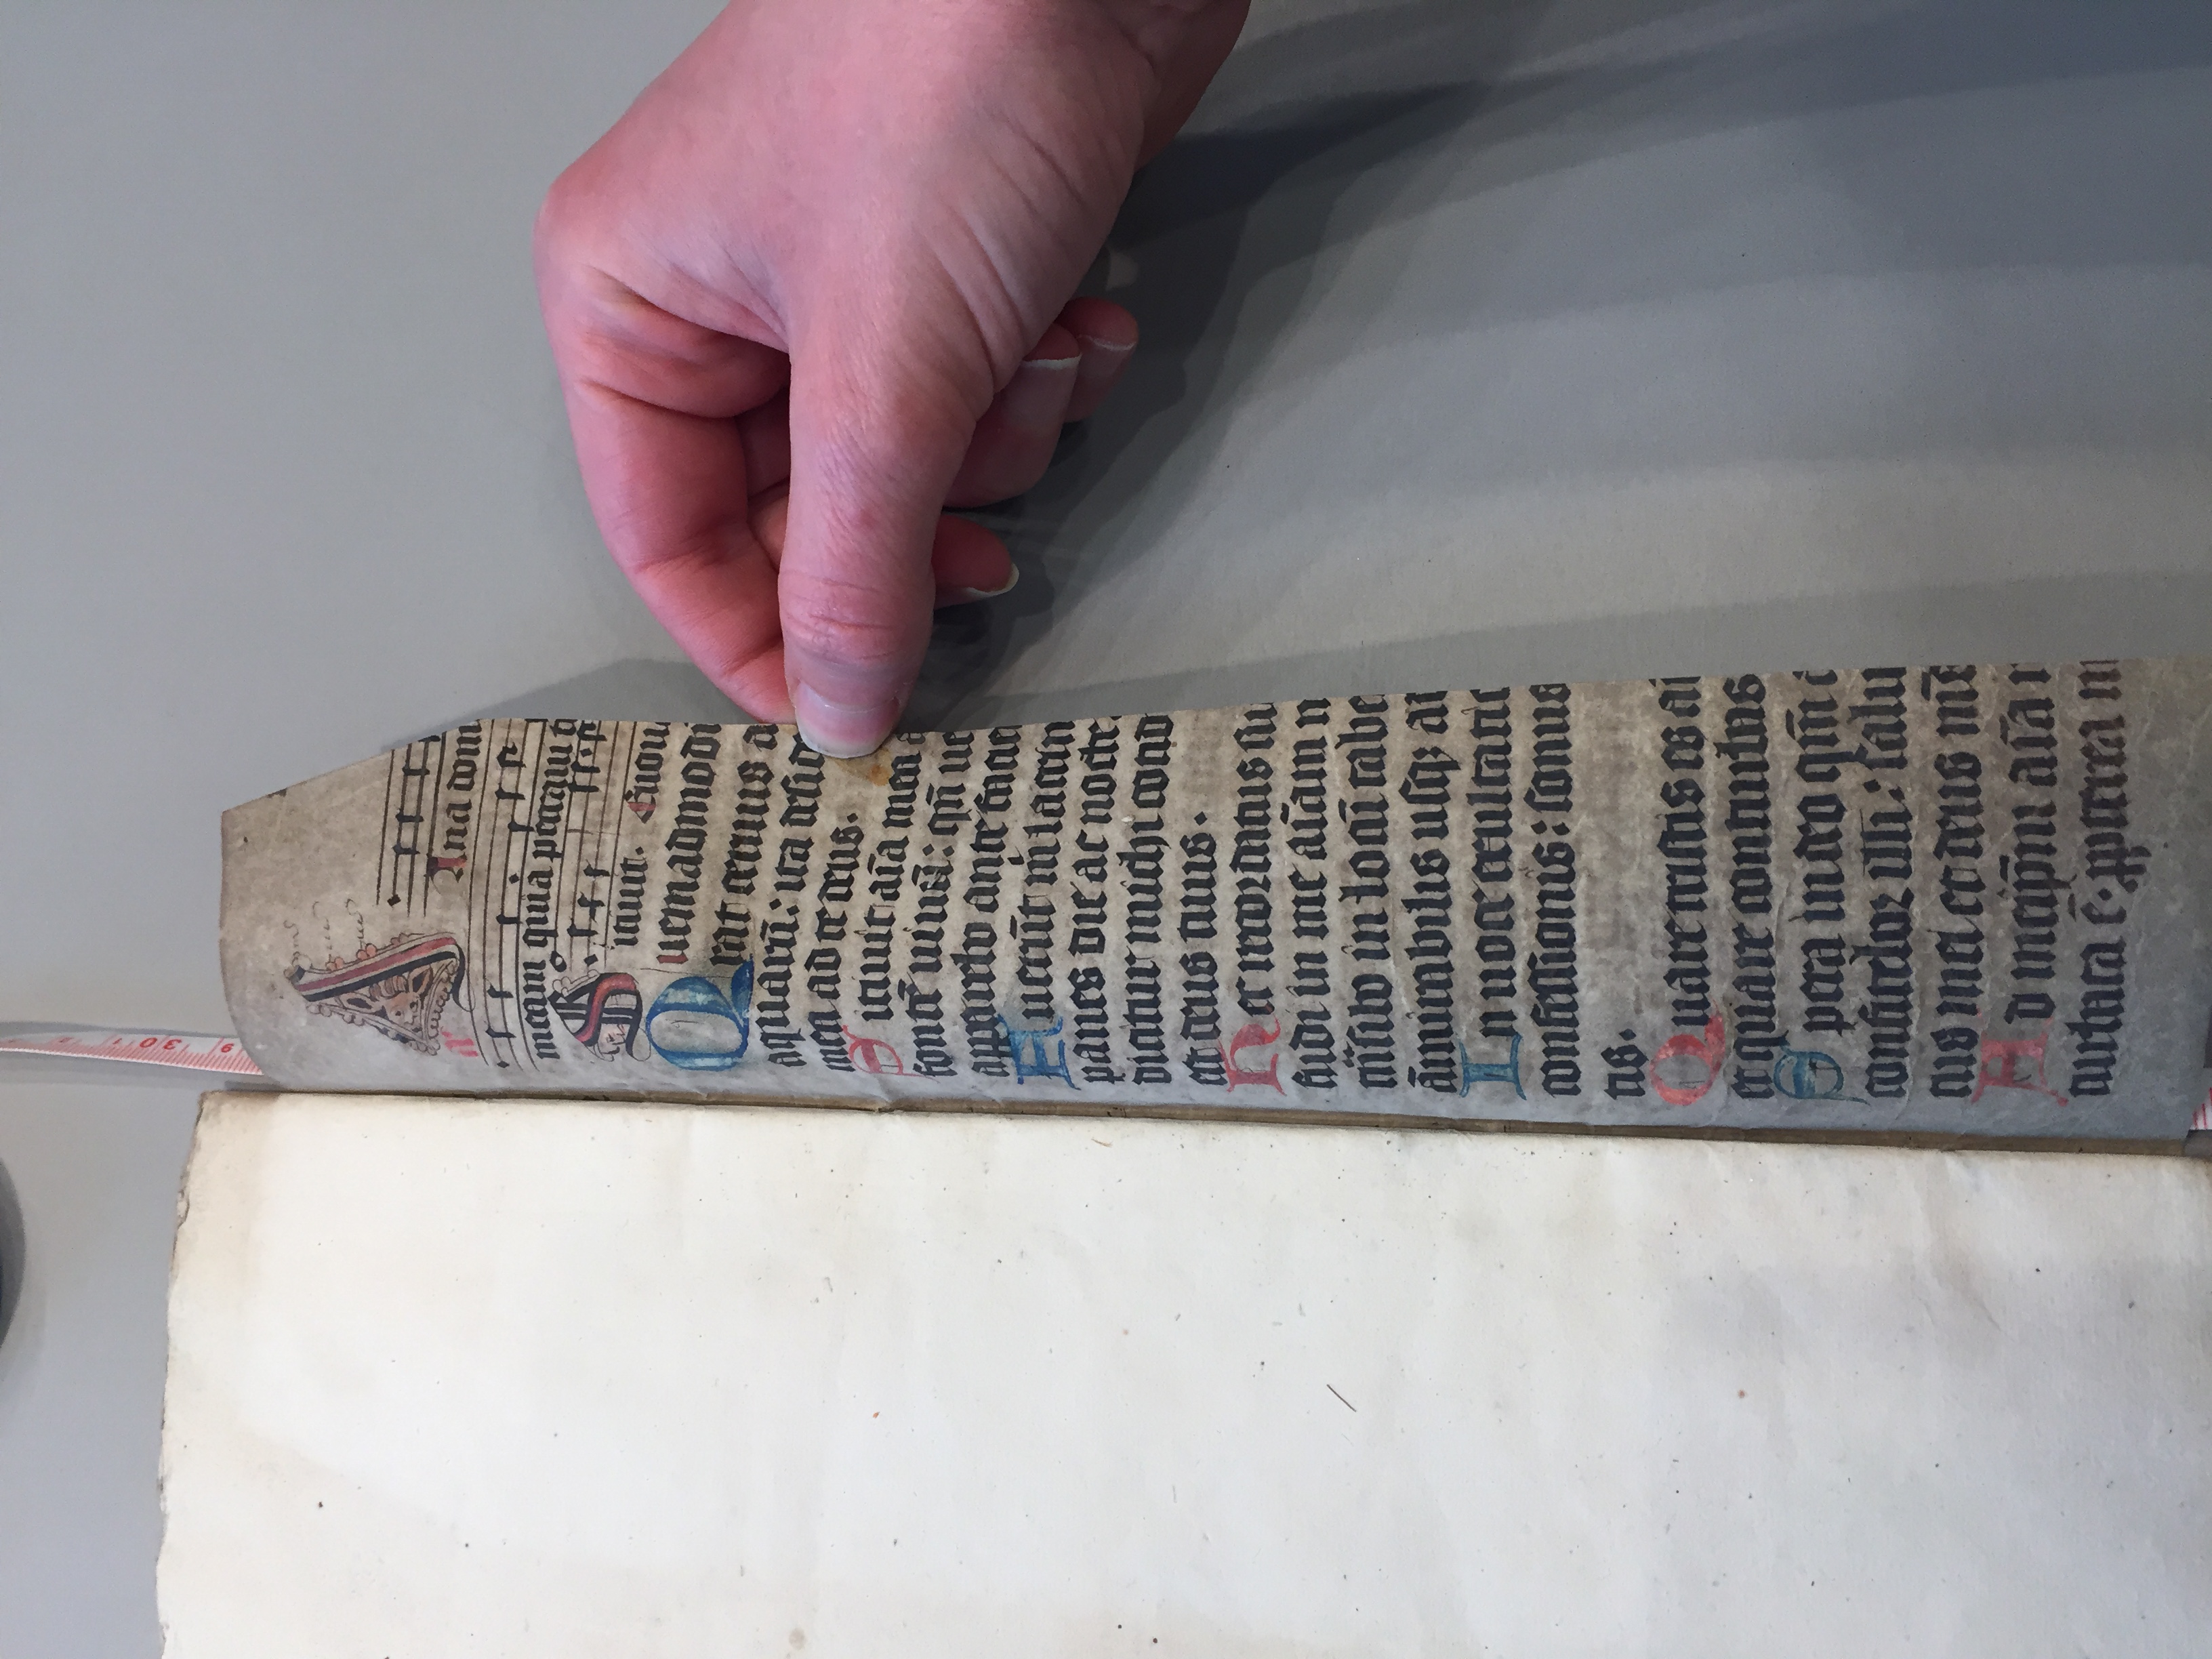 a
Ana dom
meam quia peccaui t
S itiuit. Euou
Quemadmodū
rat ceruus a
aquarū: ita deside
mea ad te deus.
Sitiuit aīa mea a
fontē uiuū: qn̄ ue
apparebo ante facie
Fuerūt m̄ lacrim
panes die ac nocte:
dicitur michi cotid
est deus tuus.
Hec recordatus su
fudi in me aīam m
trāsibo in locū tabe
āmirabilis usqꝫ ad
In uoce exultatio
confessionis: sonus
tis.
Quare tristis es aī
et quare conturbas
Spera in deo qm̄ a
confitebor illi: salu
tus mei et deus mē
Ad meip̄m aīa m
turbata ē. ꝓpterea m
30
9